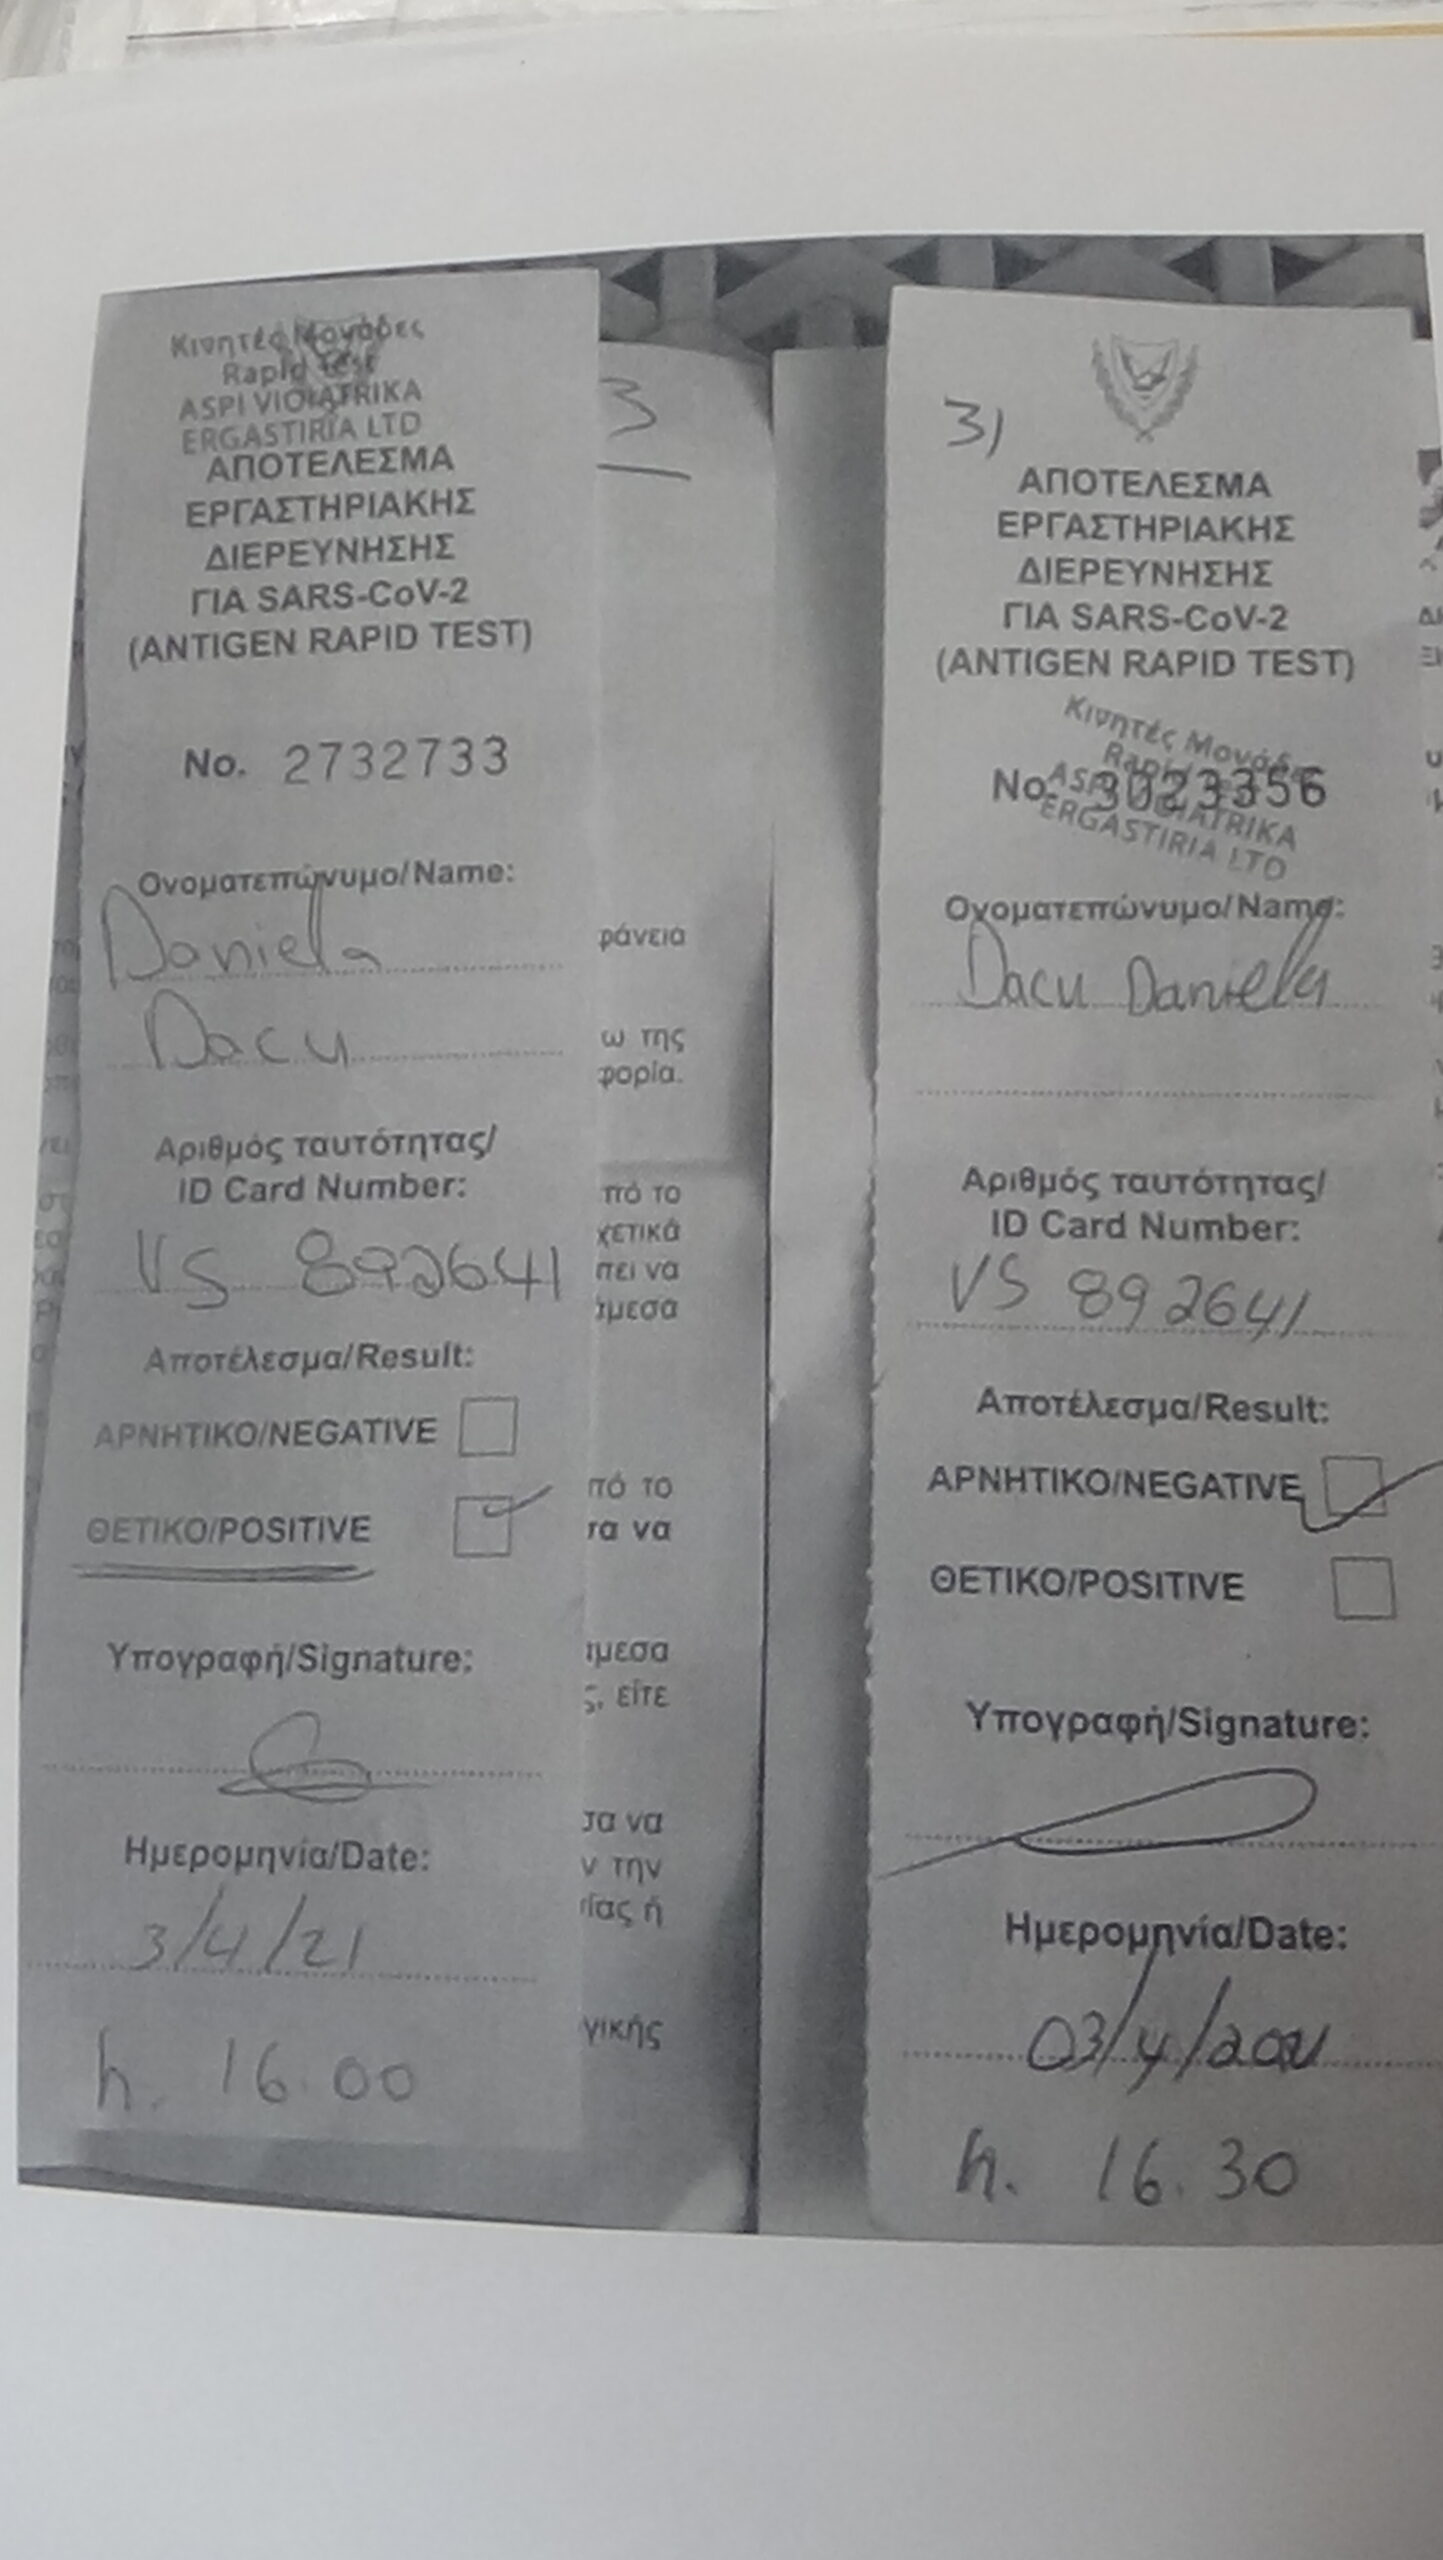 Κινητές Μονάδες
Rapid Test
ASPI VIOIATRIKA
ERGASTIRIA LTD
ΑΠΟΤΕΛΕΣΜΑ
ΕΡΓΑΣΤΗΡΙΑΚΗΣ
ΔΙΕΡΕΥΝΗΣΗΣ
ΓΙΑ SARS-CoV-2
(ANTIGEN RAPID TEST)
No. 2732733
Ονοματεπώνυμο/Name:
Daniela
Dacu
Αριθμός ταυτότητας/
ID Card Number:
VS 892641
Αποτέλεσμα/Result:
ΑΡΝΗΤΙΚΟ/NEGATIVE
ΘΕΤΙΚΟ/POSITIVE
Υπογραφή/Signature:
Ημερομηνία/Date:
3/4/21
h. 16.00
3
φάνεια
ω της
φορία.
πό το
χετικά
πει να
άμεσα
πό το
τα να
άμεσα
ς, είτε
σα να
ν την
ίας ή
γικής
3)
ΑΠΟΤΕΛΕΣΜΑ
ΕΡΓΑΣΤΗΡΙΑΚΗΣ
ΔΙΕΡΕΥΝΗΣΗΣ
ΓΙΑ SARS-CoV-2
(ANTIGEN RAPID TEST)
Κινητές Μονάδες
Rapid Test
ASPI VIOIATRIKA
ERGASTIRIA LTD
No. 3023356
Ονοματεπώνυμο/Name:
Dacu Daniela
Αριθμός ταυτότητας/
ID Card Number:
VS 892641
Αποτέλεσμα/Result:
ΑΡΝΗΤΙΚΟ/NEGATIVE
ΘΕΤΙΚΟ/POSITIVE
Υπογραφή/Signature:
Ημερομηνία/Date:
03/4/2021
h. 16.30